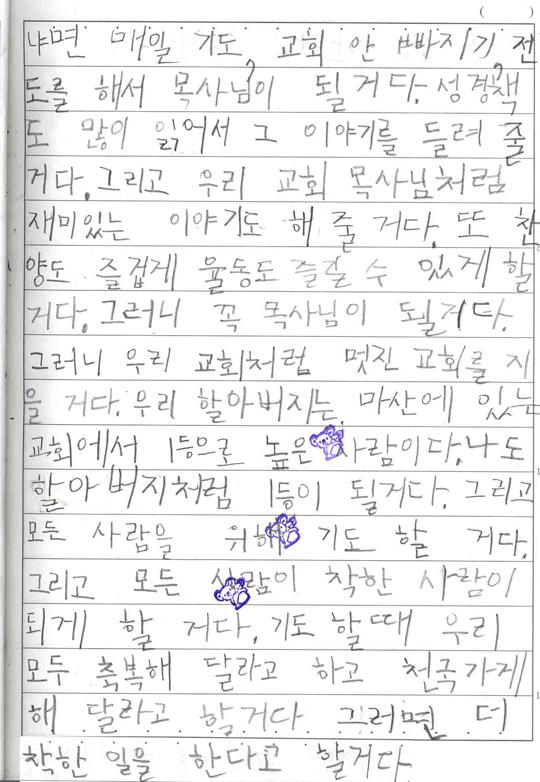 냐면 매일 기도, 교회 안 빠지기, 전
도를 해서 목사님이 될 거다. 성경책
도 많이 읽어서 그 이야기를 들려 줄
거다. 그리고 우리 교회 목사님처럼
재미있는 이야기도 해 줄 거다. 또 찬
양도 즐겁게 율동도 즐길 수 있게 할
거다. 그러니 꼭 목사님이 될거다.
그러니 우리 교회처럼 멋진 교회를 지
을 거다. 우리 할아버지는 마산에 있는
교회에서 1등으로 높은 사람이다. 나도
할아버지처럼 1등이 될거다. 그리고
모든 사람을 위해 기도 할 거다.
그리고 모든 사람이 착한 사람이
되게 할 거다. 기도 할때 우리
모두 축복해 달라고 하고 천국가게
해 달라고 할거다 그러면 더
착한 일을 한다고 할거다